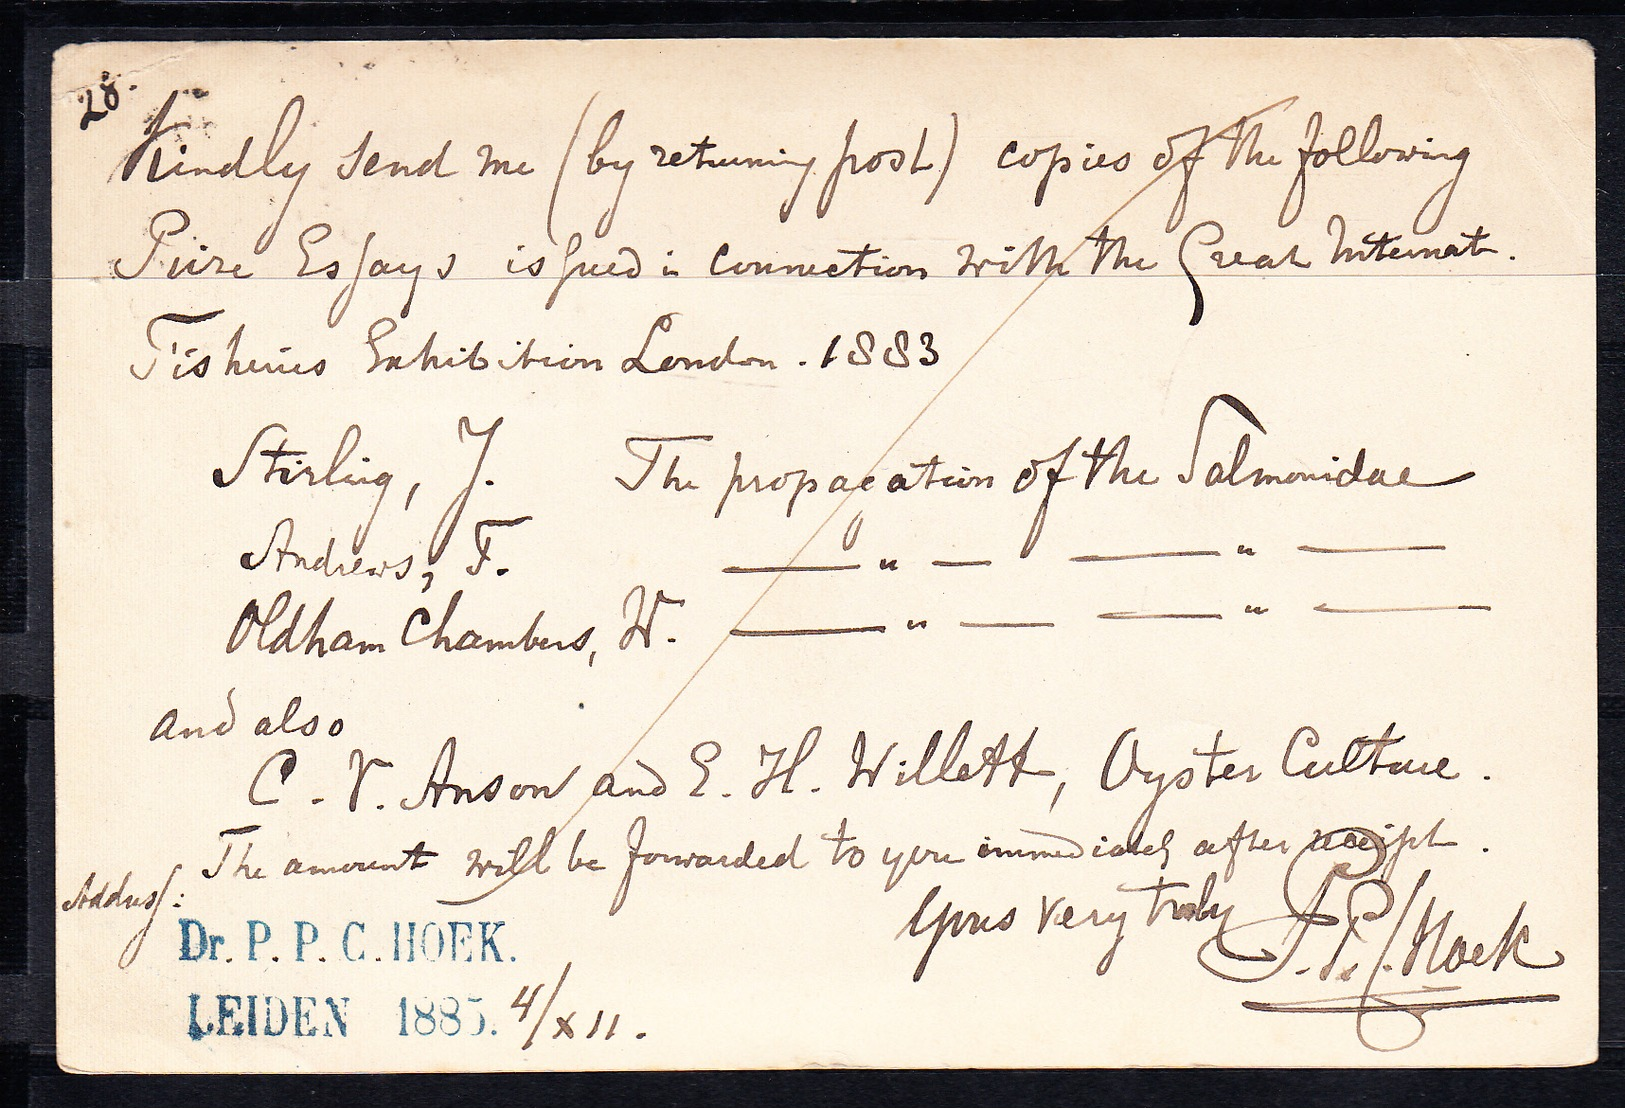 28.
Kindly send me (by returning post) copies of the following
Prize Essays issued in connection with the Great Internat.
Fisheries Exhibition London. 1883
Stirling, J. The propagation of the Salmonidae
Andrews, F. — " — — " —
Oldham Chambers, W. — " — — " —
and also
C. V. Anson and E. H. Willett, Oyster Culture.
The amount will be forwarded to you immediately after receipt.
Yours very truly
Address:
P.P.C. Hoek
Dr. P. P. C. HOEK.
LEIDEN 1885. 4/XII.